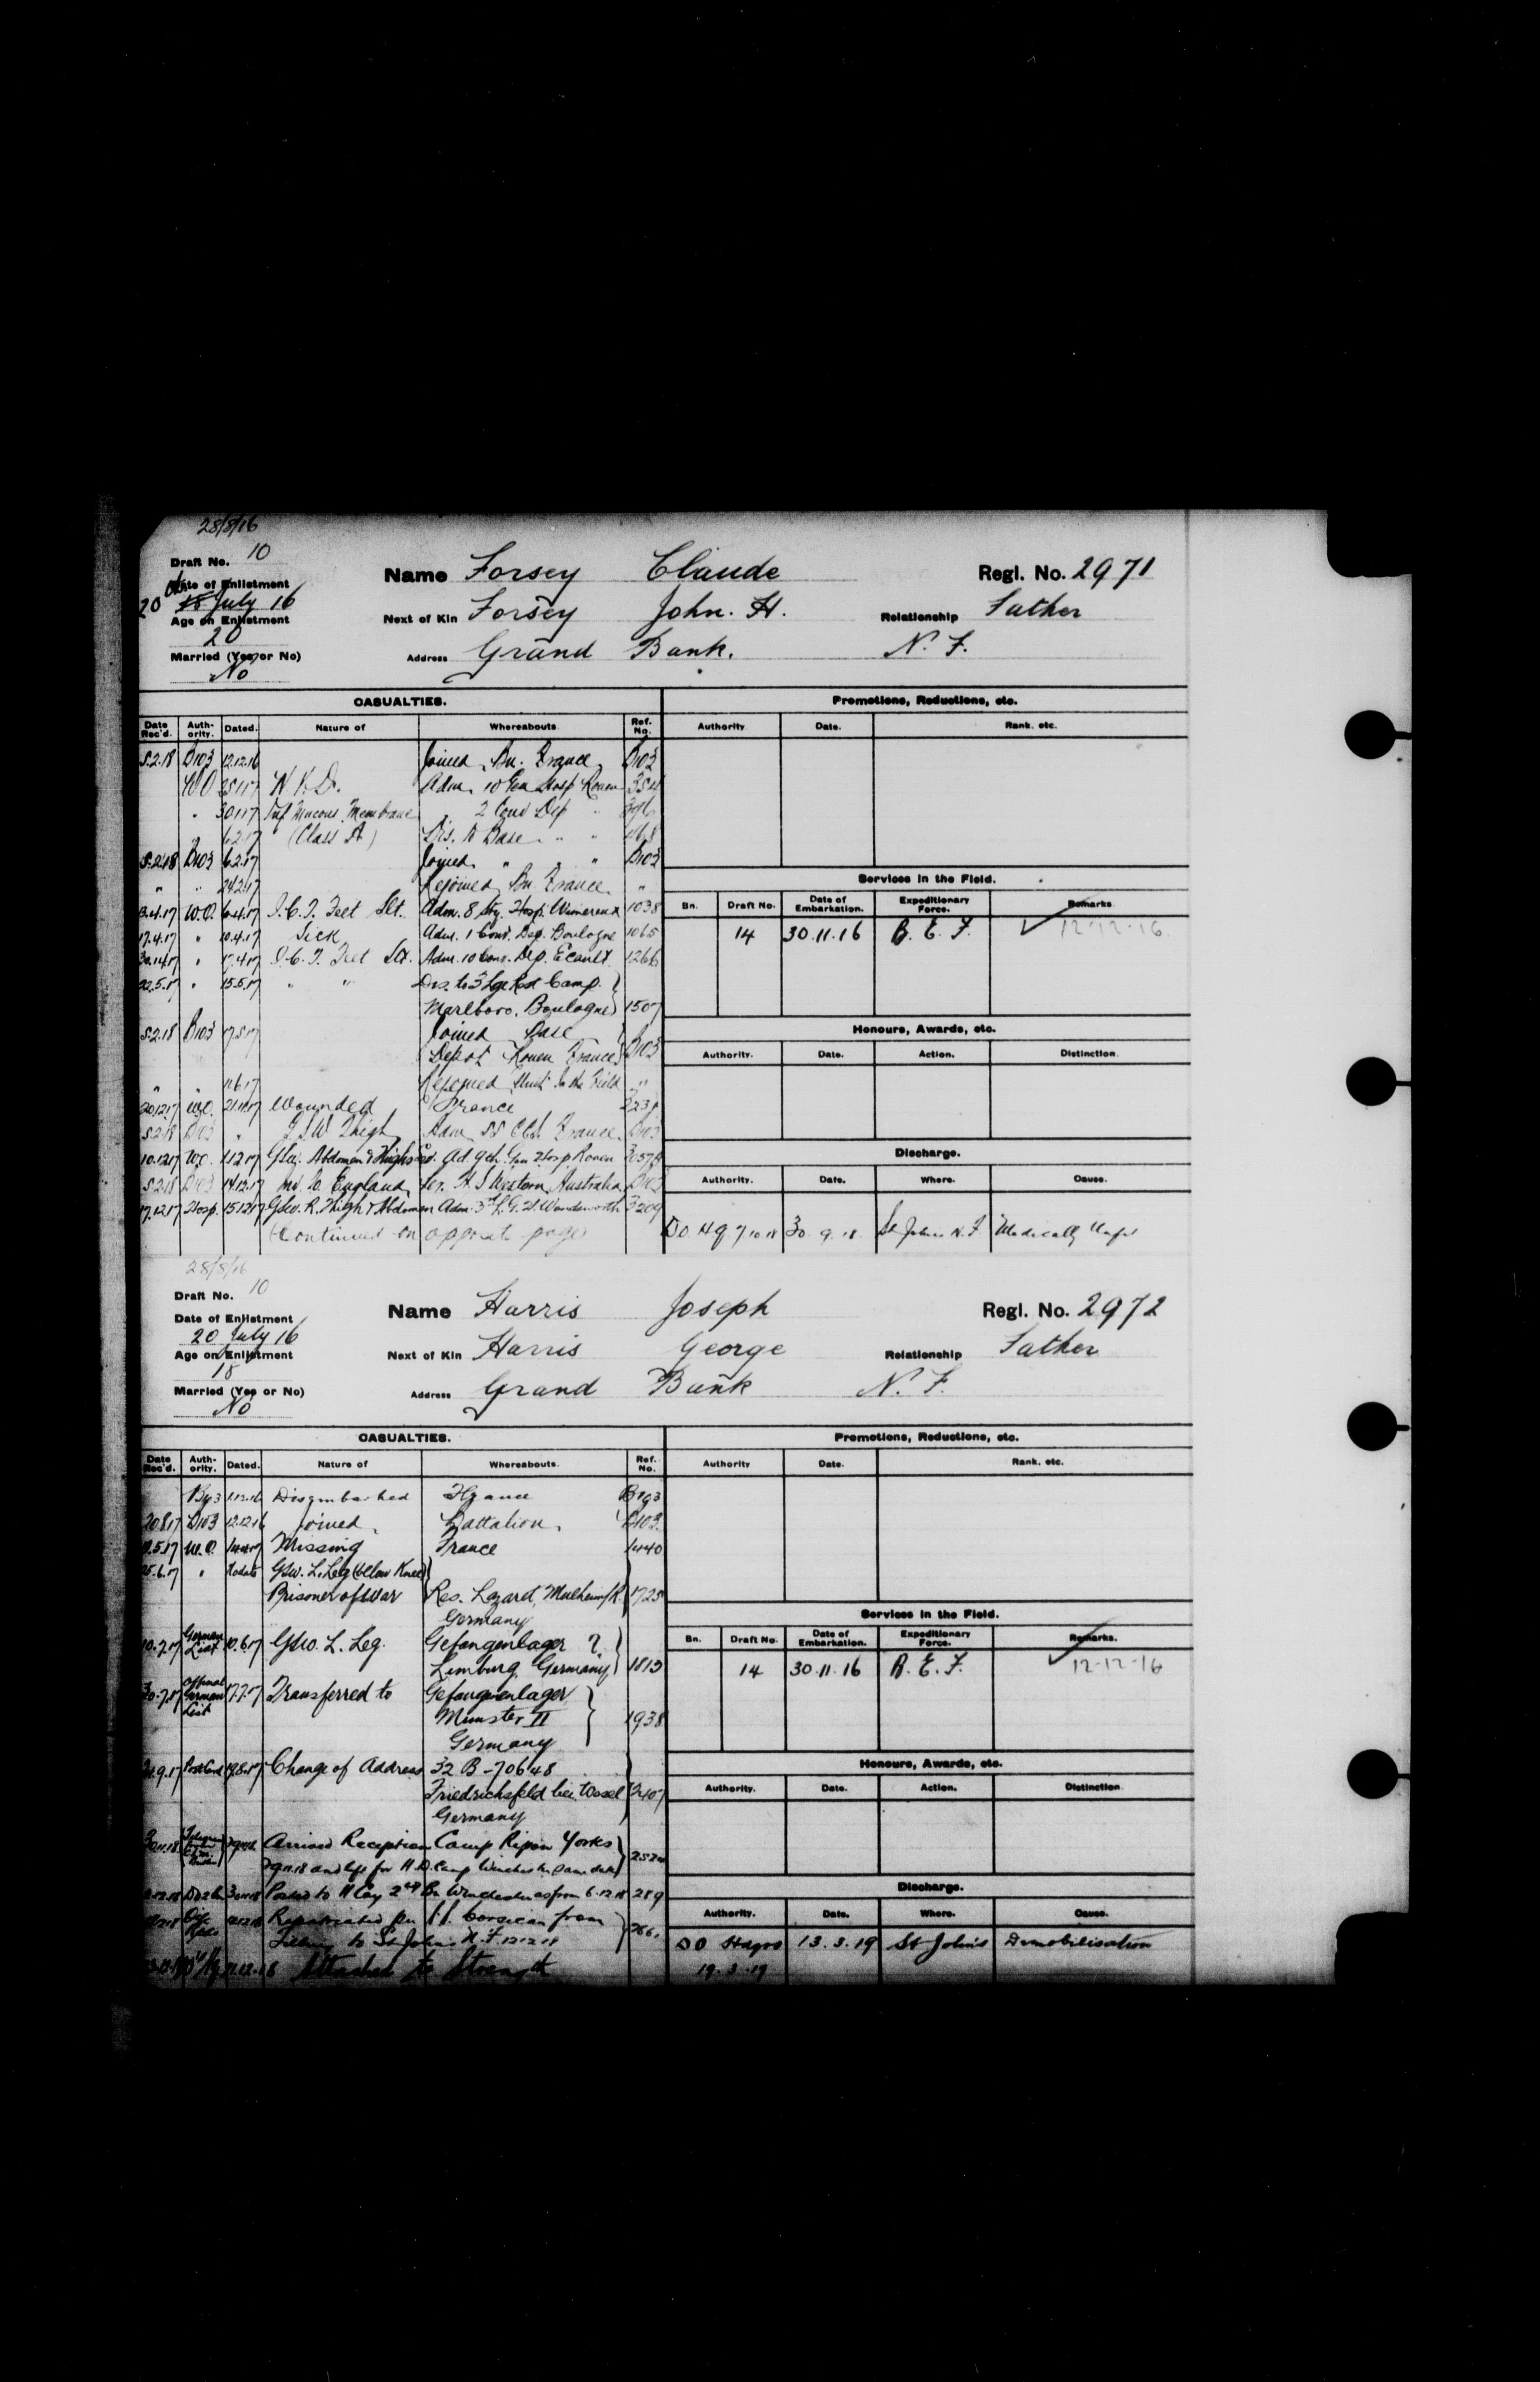 28/8/16
Draft No. 10
Date of Enlistment
20 July 16
Age on Enlistment
20
Married (Yes or No)
No
Name Forsey Claude Regl. No. 2971
Next of Kin Forsey John. H. Relationship Father
Address Grand Bank. N. F.
CASUALTIES.
Date Rec'd. Auth-ority. Dated. Nature of Whereabouts Ref. No.
5.2.18 B103 12.12.16 Joined Bn. France B103
WO 25.1.17 Adm. 10 Gen Hosp Rouen
" 30.1.17 Inf Mucous Membrane 2 Conv Dep " 396
" 6.2.17 (Class A) Dis. to Base " "
5.2.18 B103 6.2.17 Joined " " " B103
" " 24.2.17 Rejoined Bn. France "
W.O. 6.4.17 I.C.T. Feet Slt. Adm. 8 Sty. Hosp. Wimereux 1038
17.4.17 " 10.4.17 Sick Adm. 1 Conv. Dep. Boulogne 1065
30.4.17 " 17.4.17 I.C.T. Feet Slt. Adm. 10 Conv. Dep. Ecault 1266
22.5.17 " 15.5.17 " " Dis. to 3 Lge Rest Camp.
Marlboro. Boulogne 1507
5.2.18 B103 17.5.17 Joined Base
Depot Rouen France B103
" " 11.6.17 Rejoined Unit In the Field "
20.12.17 W.O. 21.11.17 Wounded France
5.2.18 B103 " G.S.W. Thigh Adm. 88 France B103
10.12.17 W.O. 1.12.17 GSW. Abdomen & Thigh Gen Hosp Rouen
5.2.18 B103 14.12.17 Inv. to England Per. H.S Western Australia B103
17.12.17 Hosp. 15.12.17 GSW. R. Thigh & Abdomen Adm. 3rd L.G.H. Wandsworth 3209
(Continued on opposite page)
Promotions, Reductions, etc.
Authority Date. Rank. etc.
Services in the Field.
Bn. Draft No. Date of Embarkation. Expeditionary Force. Remarks
14 30.11.16 B. E. F. 12-12-16
Honours, Awards, etc.
Authority. Date. Action. Distinction.
Discharge.
Authority. Date. Where. Cause.
DO. HQ 7 10 18 30 9 18 St Johns N.F Medically Unfit
28/8/16
Draft No. 10
Date of Enlistment
20 July 16
Age on Enlistment
18
Married (Yes or No)
No
Name Harris Joseph Regl. No. 2972
Next of Kin Harris George Relationship Father
Address Grand Bank N. F.
CASUALTIES.
Date Rec'd. Auth-ority. Dated. Nature of Whereabouts. Ref. No.
1.12.16 Disembarked France B103
20.8.17 B103 12.12.16 Joined Battalion. B103
W.O. Missing France 1440
25.6.17 " No date GSW. L. Leg (below Knee)
Prisoner of War Res. Lazaret, Mulheim/R. 1725
Germany
10.7.17 German List 10.6.17 GSW. L. Leg. Gefangenlager ?
Limburg Germany
30.7.17 Official German List 17.7.17 Transferred to Gefangenenlager
Munster II 1938
Germany
Post Card Change of Address 32 B-70648
Friedrichsfeld bei Wesel 2407
Germany
Arrived Reception Camp Ripon Yorks
and left for H.D. Camp Winchester same date
Posted to H Coy 2nd Bn Winchester as from 6.12.18 289
Repatriated per S.S. Corsican from
Tilbury to St Johns N.F. 12.12.18
11.12.18 Attached to Strength
Promotions, Reductions, etc.
Authority Date. Rank. etc.
Services in the Field.
Bn. Draft No. Date of Embarkation. Expeditionary Force. Remarks.
14 30.11.16 B. E. F. 12-12-16
Honours, Awards, etc.
Authority. Date. Action. Distinction
Discharge.
Authority. Date. Where. Cause.
DO Hdqrs 13.3.19 St John's Demobilisation
19.3.19